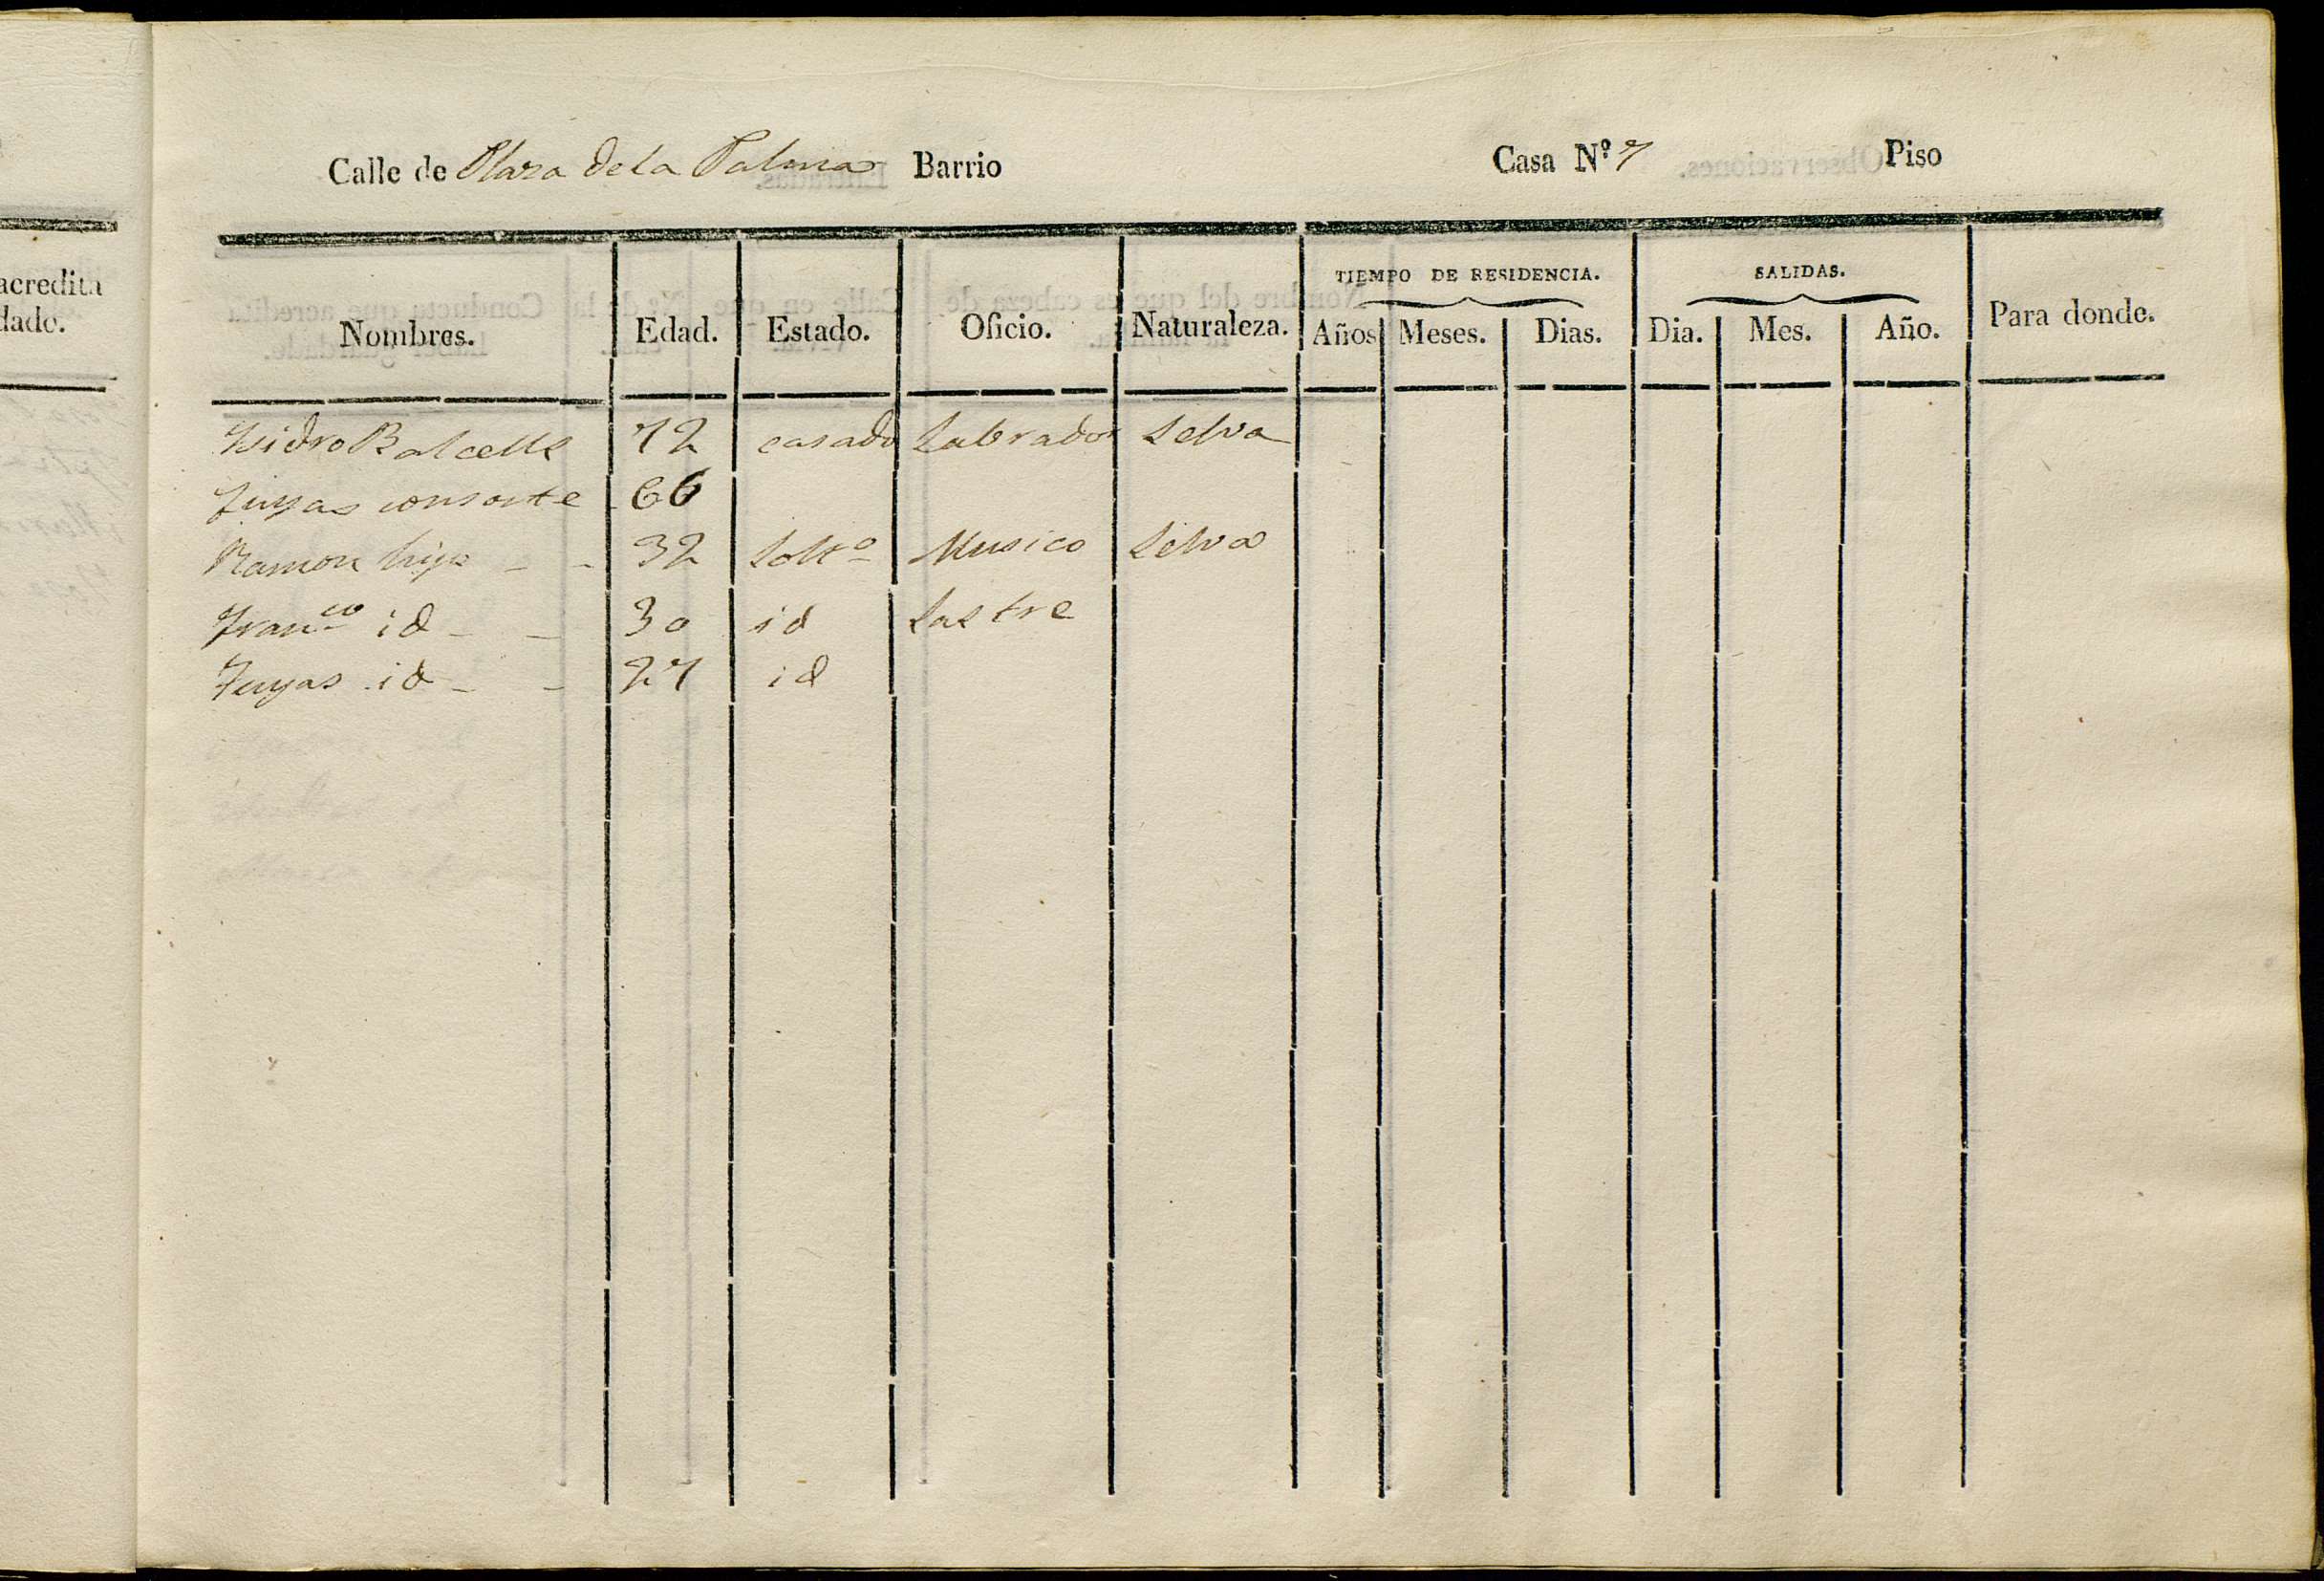 acredita
dado.
Calle de Plaza de la Palma Barrio Casa N.º 7 Piso
TIEMPO DE RESIDENCIA. SALIDAS.
Nombres. Edad. Estado. Oficio. Naturaleza. Años Meses. Dias. Dia. Mes. Año. Para donde.
Isidro Balcells 72 casado Labrador Selva
consorte 66
Ramon hijo - - 32 Solt.o Musico Selva
Fran.co id - - 30 id Sastre
id - - 27 id